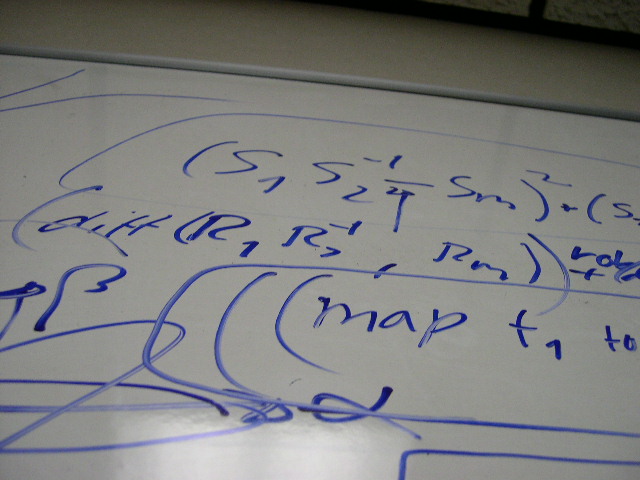 (S₁ S₂⁻¹ Sm)² + (S
(diff (R₁ R₂⁻¹, Rm)
β
(((map t₁ to
α